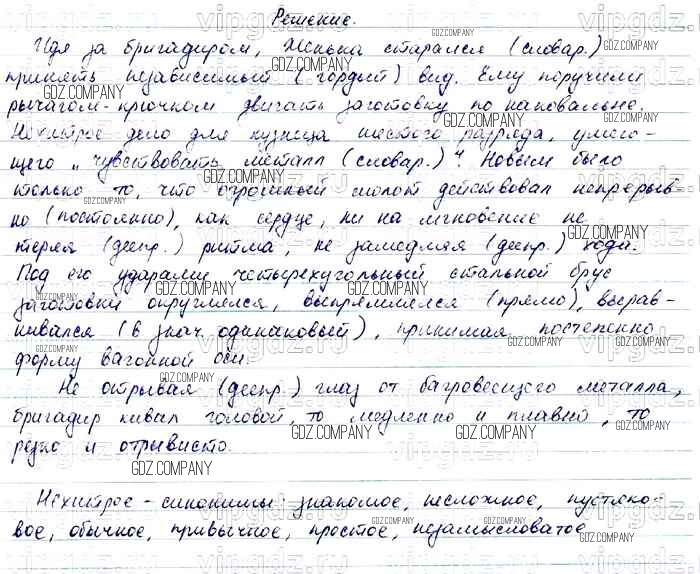 Решение.
Идя за бригадиром, Женька старался (словар.)
принять независимый (гордый) вид. Ему поручили
рычагом-крючком двигать заготовку по наковальне.
Нехитрое дело для кузнеца шестого разряда, умею-
щего „чувствовать металл (словар.)". Новым было
только то, что огромный молот действовал непрерыв-
но (постоянно), как сердце, ни на мгновение не
теряя (деепр.) ритма, не замедляя (деепр.) хода.
Под его ударами четырехугольный стальной брус
заготовки округлялся, выпрямлялся (прямо), вырав-
нивался (в знач. одинаковый), принимая постепенно
форму вагонной оси.
Не отрывая (деепр.) глаз от багровеющего металла,
бригадир кивал головой, то медленно и плавно, то
резко и отрывисто.
Нехитрое - синонимы: знакомое, несложное, пустяко-
вое, обычное, привычное, простое, незамысловатое